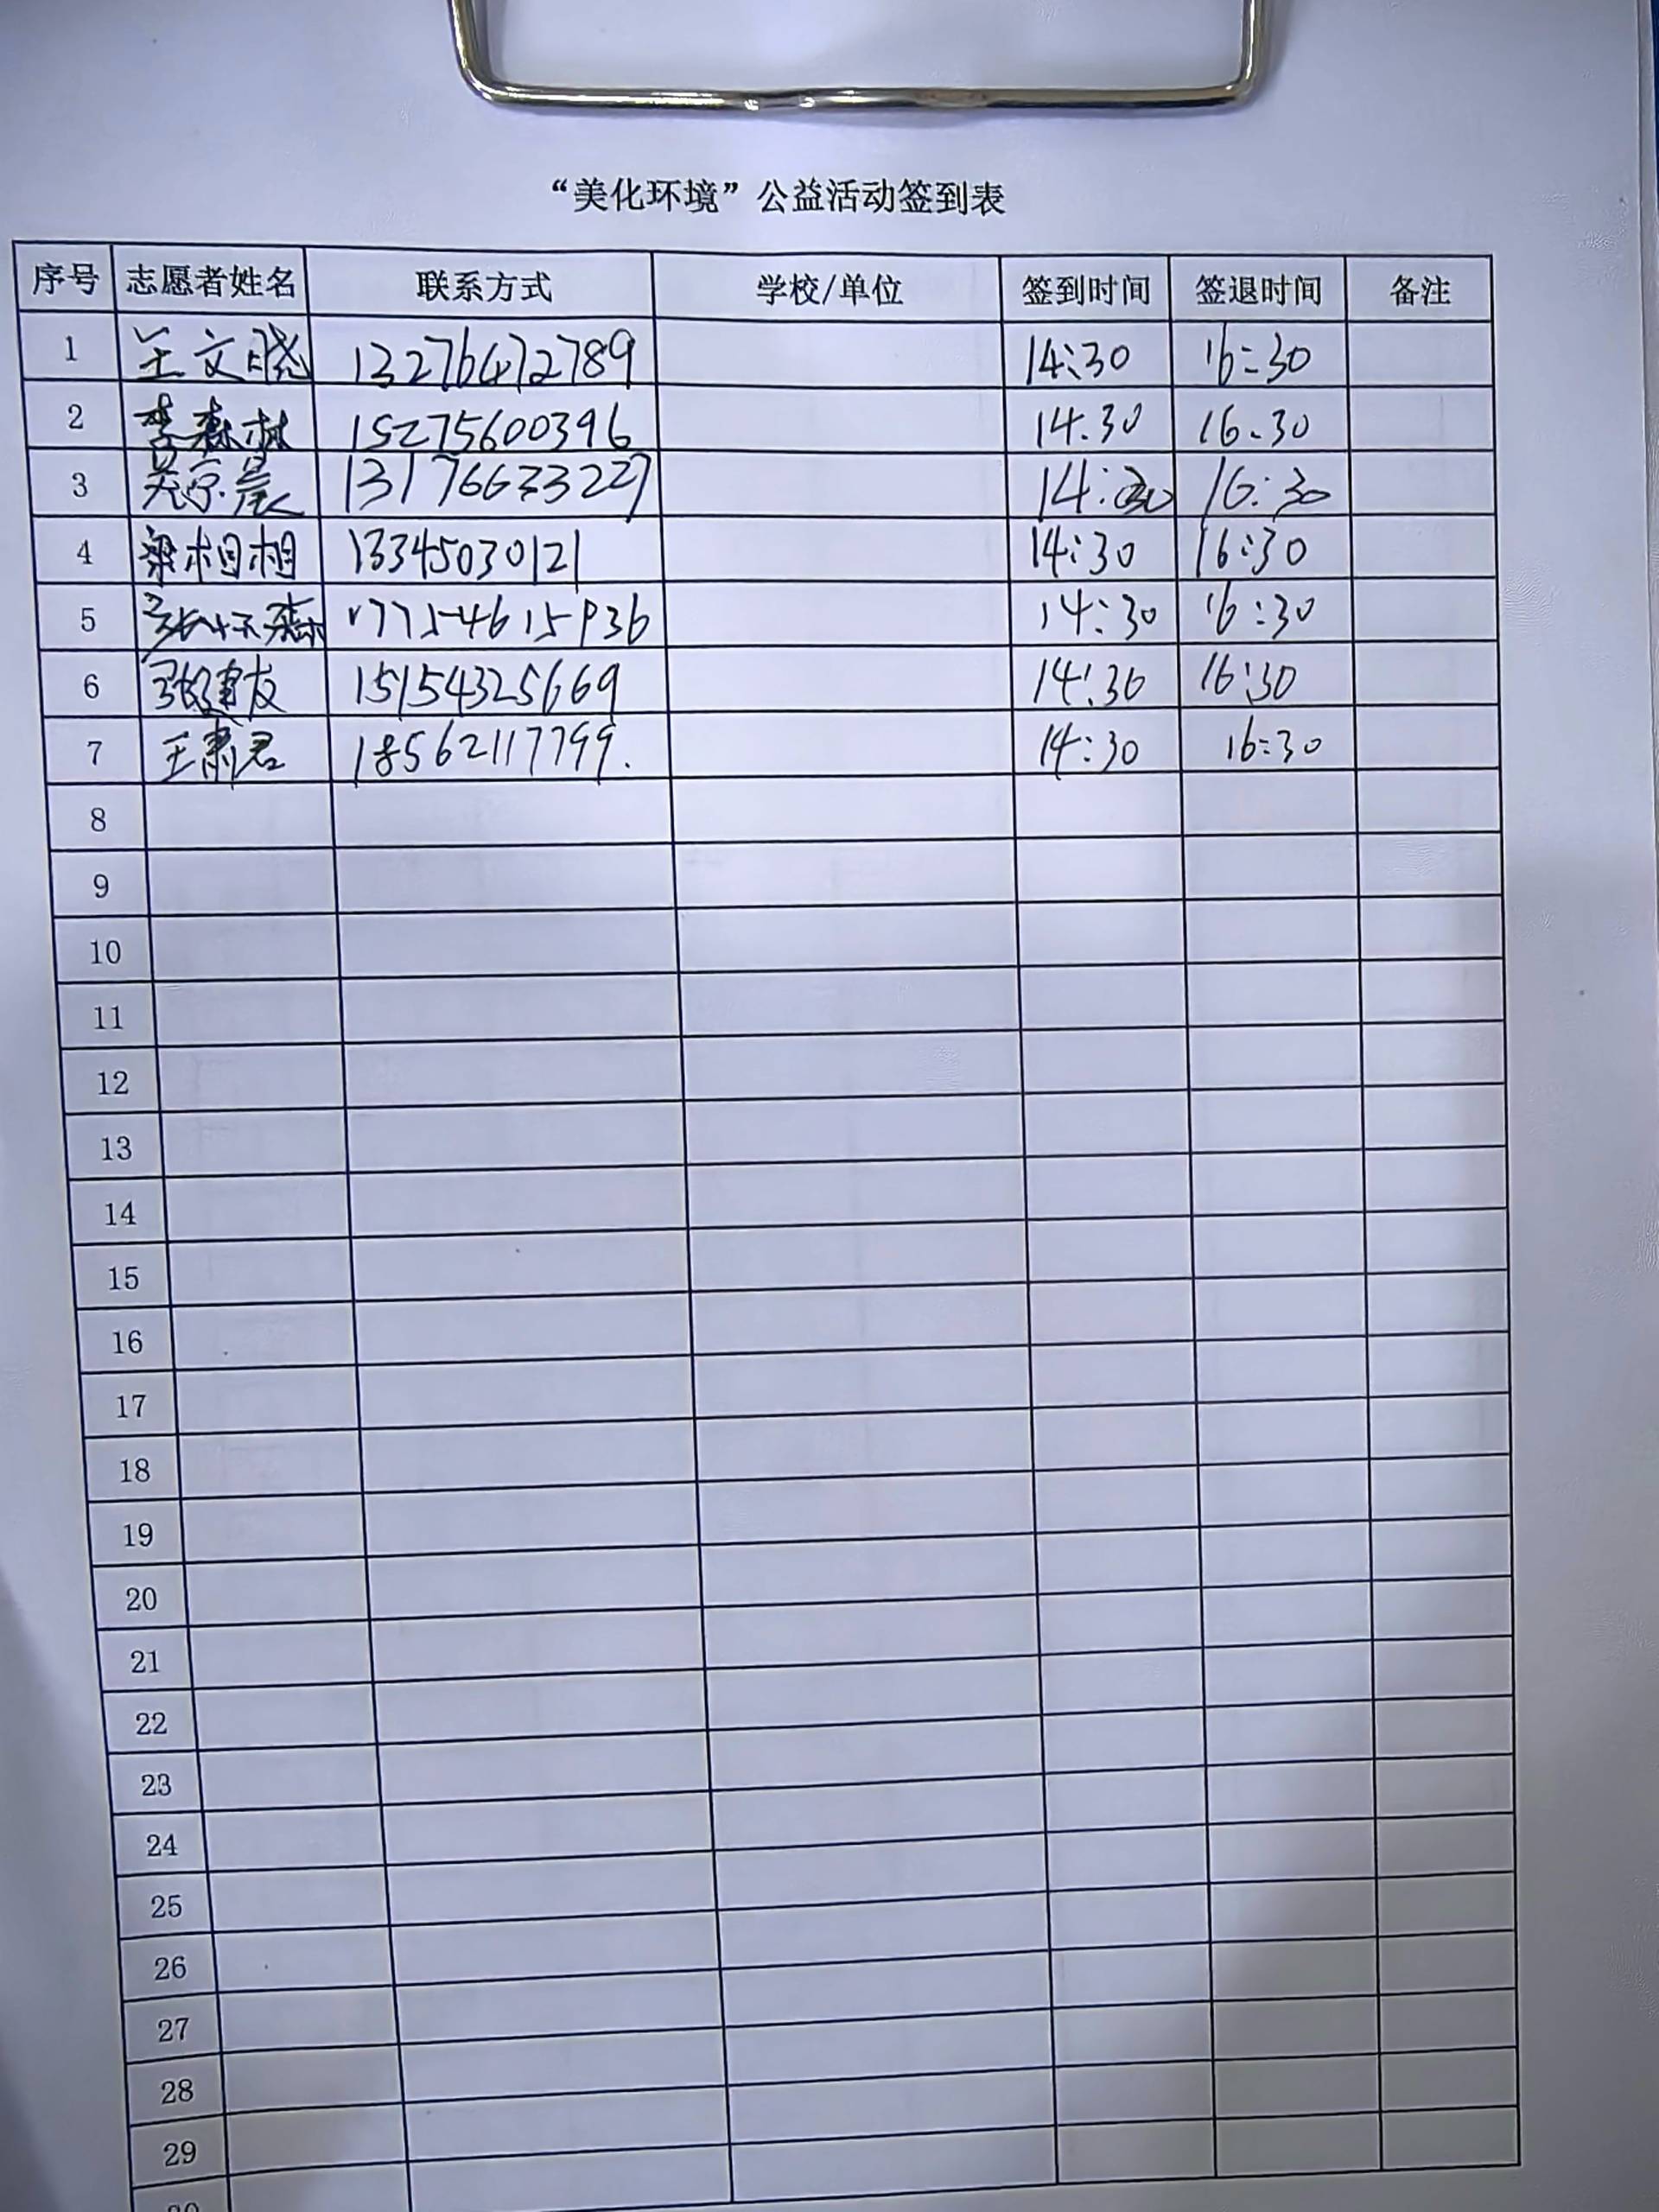 “美化环境”公益活动签到表
序号 志愿者姓名 联系方式 学校/单位 签到时间 签退时间 备注
1 王文晓 13276472789 14:30 16:30
2 李森林 15275600396 14.30 16.30
3 吴京晨 13176673227 14:30 16:30
4 梁相相 13345030121 14:30 16:30
5 17754615936 14:30 16:30
6 张建友 15154325669 14:30 16:30
7 王肃君 18562117799. 14:30 16:30
8
9
10
11
12
13
14
15
16
17
18
19
20
21
22
23
24
25
26
27
28
29